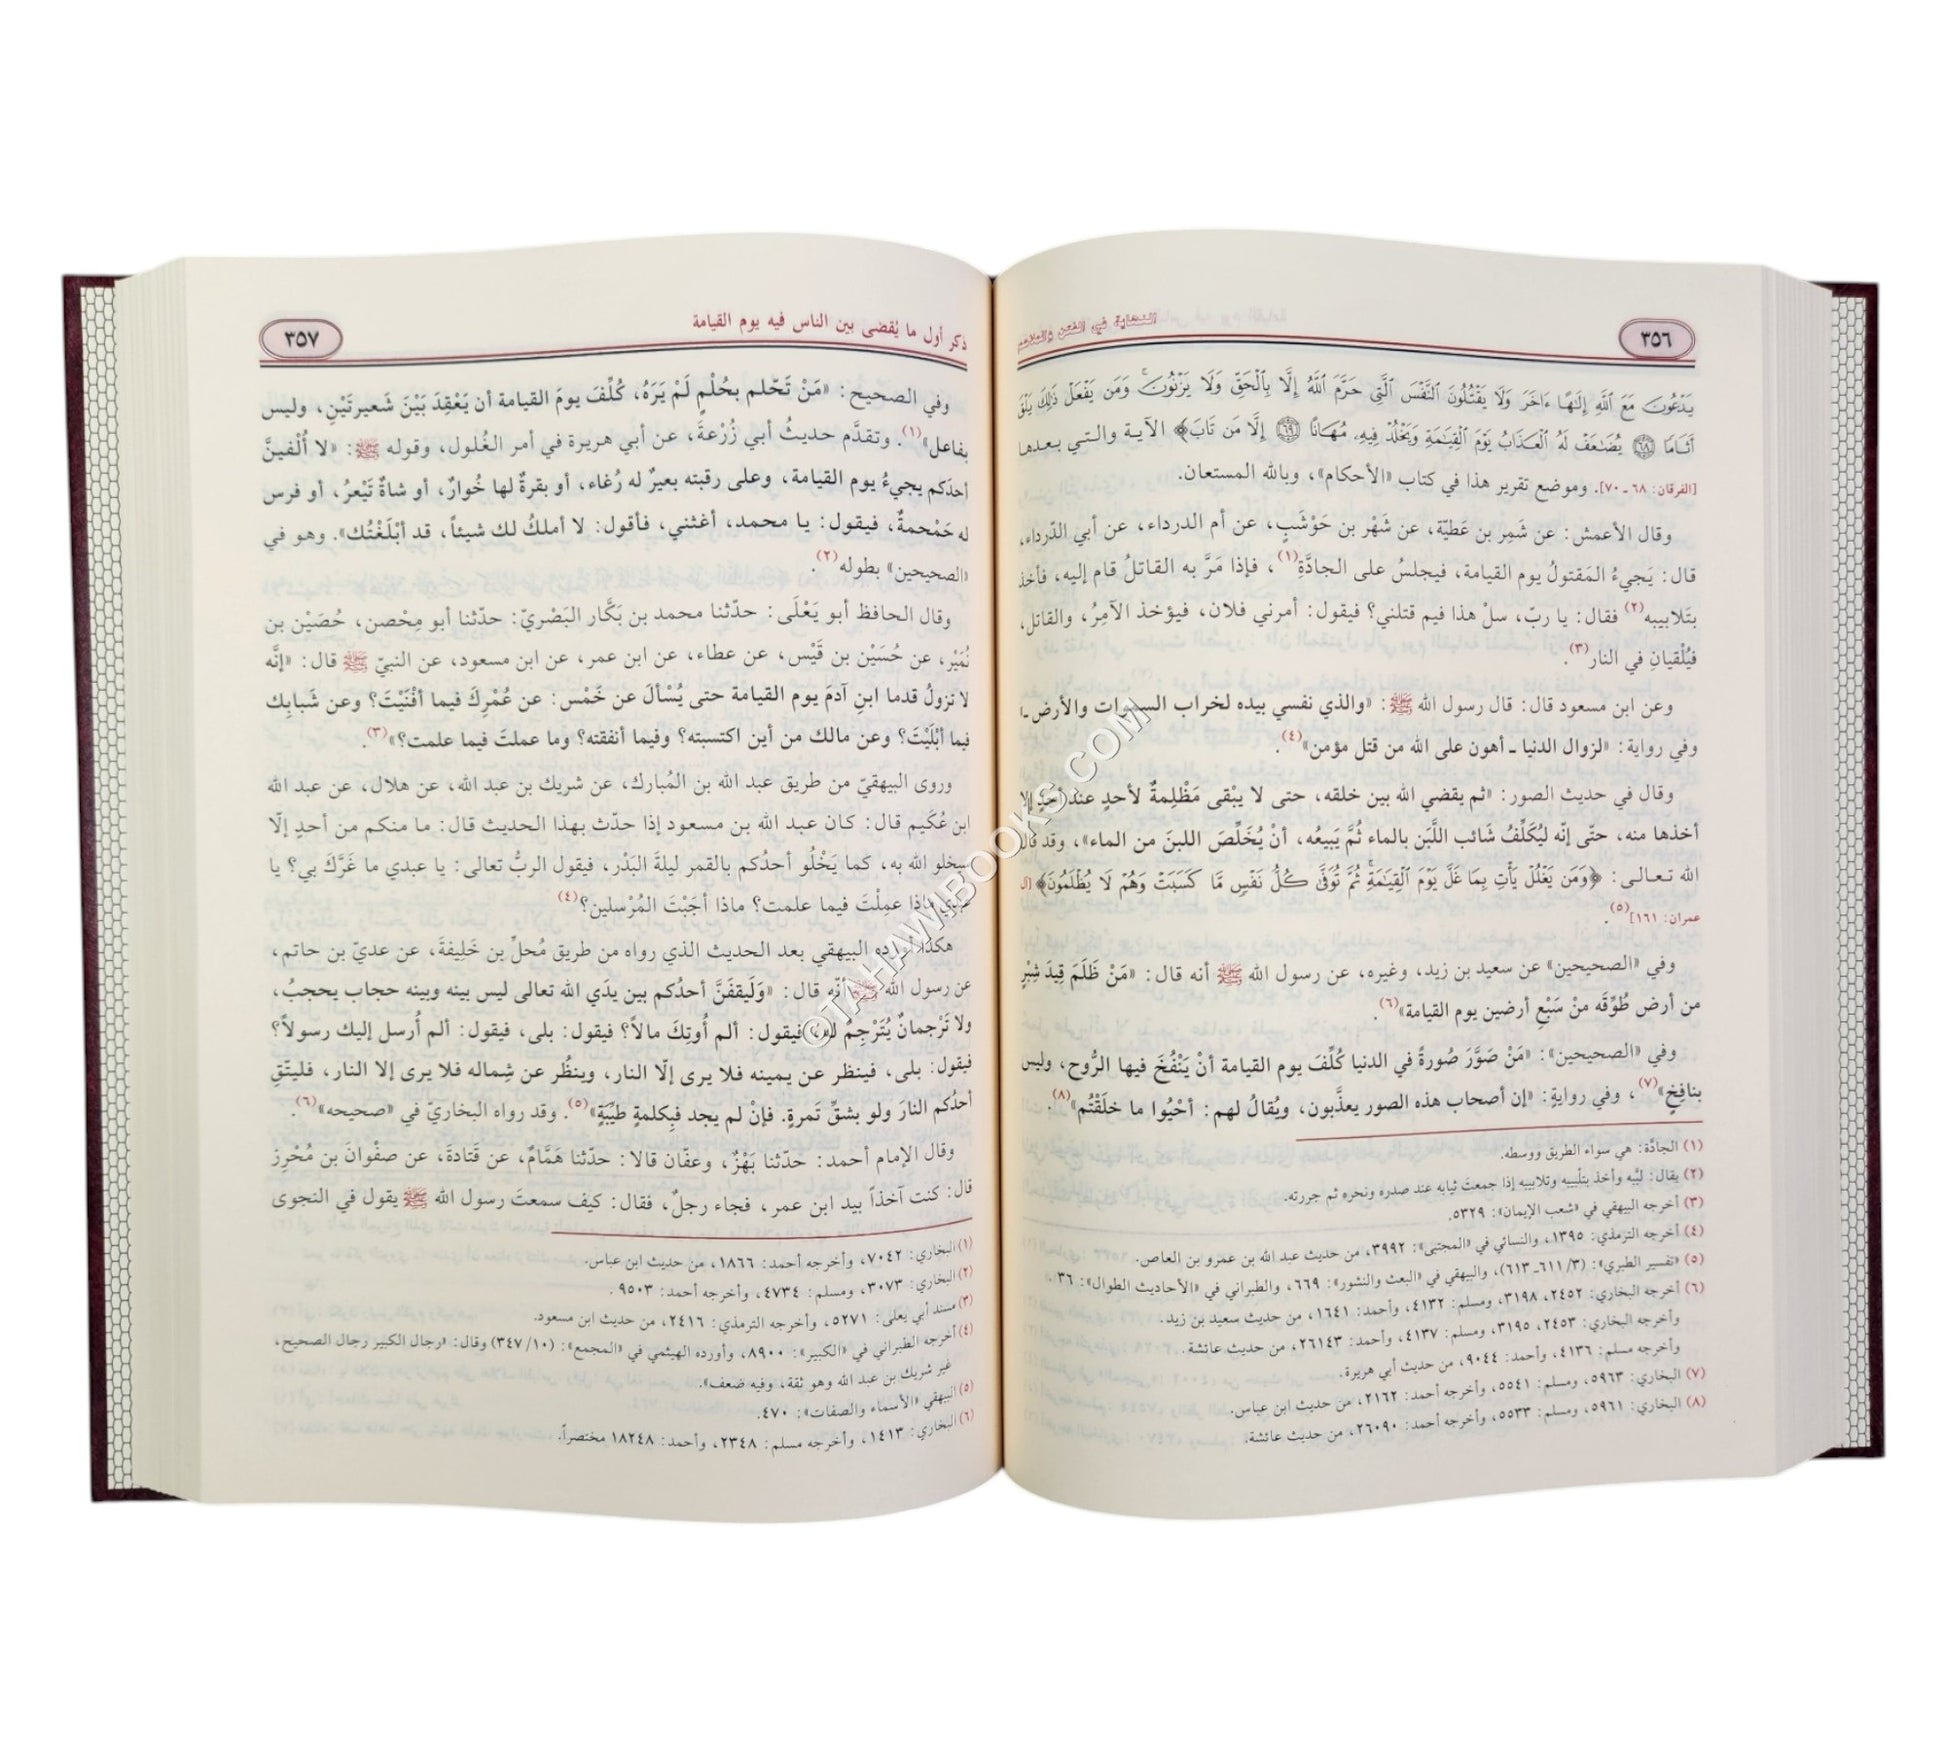 ٣٥٦
النهاية في الفتن والملاحم
يَدْعُونَ مَعَ اللَّهِ إِلَٰهًا ءَاخَرَ وَلَا يَقْتُلُونَ النَّفْسَ الَّتِي حَرَّمَ اللَّهُ إِلَّا بِالْحَقِّ وَلَا يَزْنُونَ ۚ وَمَن يَفْعَلْ ذَٰلِكَ يَلْقَ
أَثَامًا ﴿٦٨﴾ يُضَٰعَفْ لَهُ الْعَذَابُ يَوْمَ الْقِيَٰمَةِ وَيَخْلُدْ فِيهِ مُهَانًا ﴿٦٩﴾ إِلَّا مَن تَابَ﴾ الآية والتي بعدها
[الفرقان: ٦٨ ـ ٧٠]. وموضع تقرير هذا في كتاب «الأحكام»، وبالله المستعان.
وقال الأعمش: عن شَمِر بن عَطيّة، عن شَهْر بن حَوْشَبٍ، عن أم الدرداء، عن أبي الدّرداء،
قال: يَجيءُ المَقتولُ يوم القيامة، فيجلسُ على الجادَّةِ(١)، فإذا مَرَّ به القاتلُ قام إليه، فأخذ
بتَلابيبه(٢) فقال: يا ربّ، سلْ هذا فيم قتلني؟ فيقول: أمرني فلان، فيؤخذ الآمِرُ، والقاتل،
فيُلْقيانِ في النار(٣).
وعن ابن مسعود قال: قال رسول الله ﷺ: «والذي نفسي بيده لخراب السموات والأرض ـ
وفي رواية: «لزوال الدنيا ـ أهون على الله من قتل مؤمن»(٤).
وقال في حديث الصور: «ثم يقضي الله بين خلقه، حتى لا يبْقى مَظْلِمةٌ لأحدٍ عند أحدٍ إلا
أخذها منه، حتّى إنّه ليُكَلِّفُ شَائب اللَّبَن بالماء ثُمَّ يَبيعُه، أنْ يُخَلِّصَ اللبنَ من الماء»، وقد قال
الله تعالى: ﴿وَمَن يَغْلُلْ يَأْتِ بِمَا غَلَّ يَوْمَ الْقِيَٰمَةِ ۚ ثُمَّ تُوَفَّىٰ كُلُّ نَفْسٍ مَّا كَسَبَتْ وَهُمْ لَا يُظْلَمُونَ﴾ [آل
عمران: ١٦١](٥).
وفي «الصحيحين» عن سعيد بن زيد، وغيره، عن رسول الله ﷺ أنه قال: «مَنْ ظَلَمَ قِيدَ شِبْرٍ
من أرض طُوِّقَه مِنْ سَبْعِ أرضين يوم القيامة»(٦).
وفي «الصحيحين»: «مَنْ صَوَّرَ صُورةً في الدنيا كُلِّفَ يوم القيامة أنْ يَنْفُخَ فيها الرُّوح، وليس
بنافِخٍ»(٧)، وفي روايةٍ: «إن أصحاب هذه الصور يعذَّبون، ويُقالُ لهم: أحْيُوا ما خلَقْتُم»(٨).
(١) الجادَّة: هي سواء الطريق ووسطه.
(٢) يقال: لبَّبه وأخذ بتلْبيبه وتلابيبه إذا جمعتَ ثيابه عند صدره ونحره ثم جررته.
(٣) أخرجه البيهقي في «شعب الإيمان»: ٥٣٢٩.
(٤) أخرجه الترمذي: ١٣٩٥، والنسائي في «المجتبى»: ٣٩٩٢، من حديث عبد الله بن عمرو بن العاص.
(٥) «تفسير الطبري»: (٣/ ٦١١ـ ٦١٣)، والبيهقي في «البعث والنشور»: ٦٦٩، والطبراني في «الأحاديث الطوال»: ٣٦.
(٦) أخرجه البخاري: ٢٤٥٢، ٣١٩٨، ومسلم: ٤١٣٢، وأحمد: ١٦٤١، من حديث سعيد بن زيد.
وأخرجه البخاري: ٢٤٥٣، ٣١٩٥، ومسلم: ٤١٣٧، وأحمد: ٢٦١٤٣، من حديث عائشة.
وأخرجه مسلم: ٤١٣٦، وأحمد: ٩٠٤٤، من حديث أبي هريرة.
(٧) البخاري: ٥٩٦٣، ومسلم: ٥٥٤١، وأخرجه أحمد: ٢١٦٢، من حديث ابن عباس.
(٨) البخاري: ٥٩٦١، ومسلم: ٥٥٣٣، وأخرجه أحمد: ٢٦٠٩٠، من حديث عائشة.
ذكر أول ما يُقضى بين الناس فيه يوم القيامة
٣٥٧
وفي الصحيح: «مَنْ تَحّلم بحُلْمٍ لَمْ يَرَهُ، كُلِّفَ يومَ القيامة أن يَعْقِدَ بَيْنَ شَعيرتَيْنِ، وليس
بفاعل»(١). وتقدَّم حديثُ أبي زُرْعةَ، عن أبي هريرة في أمر الغُلول، وقوله ﷺ: «لا ألْفينَّ
أحدَكم يجيءُ يوم القيامة، وعلى رقبته بعيرٌ له رُغاء، أو بقرةٌ لها خُوارٌ، أو شاةٌ تَيْعرُ، أو فرس
له حَمْحمةٌ، فيقول: يا محمد، أغثني، فأقول: لا أملكُ لك شيئاً، قد أبْلَغْتُك». وهو في
«الصحيحين» بطوله(٢).
وقال الحافظ أبو يَعْلَى: حدّثنا محمد بن بَكَّار البَصْريّ: حدّثنا أبو مِحْصن، حُصَيْن بن
نُمَيْر، عن حُسَيْن بن قَيْس، عن عطاء، عن ابن عمر، عن ابن مسعود، عن النبيّ ﷺ قال: «إنَّه
لا تزولُ قدما ابنِ آدمَ يوم القيامة حتى يُسْألَ عن خَمْس: عن عُمْرِكَ فيما أفْنَيْتَ؟ وعن شَبابِك
فيما أبْلَيْتَ؟ وعن مالك من أين اكتسبته؟ وفيما أنفقته؟ وما عملتَ فيما علمت؟»(٣).
وروى البيهقيّ من طريق عبد الله بن المُبارك، عن شريك بن عبد الله، عن هلال، عن عبد الله
ابن عُكَيم قال: كان عبد الله بن مسعود إذا حدّث بهذا الحديث قال: ما منكم من أحدٍ إلّا
سيخلو الله به، كما يَخْلُو أحدُكم بالقمر ليلةَ البَدْر، فيقول الربُّ تعالى: يا عبدي ما غَرَّكَ بي؟ يا
عبدي ماذا عمِلْتَ فيما علمت؟ ماذا أجَبْتَ المُرْسلين؟(٤)
هكذا أورده البيهقي بعد الحديث الذي رواه من طريق مُحلِّ بن خَلِيفةَ، عن عديّ بن حاتم،
عن رسول الله ﷺ أنّه قال: «وَلَيقفَنَّ أحدُكم بين يدَي الله تعالى ليس بينه وبينه حجاب يحجبُ،
ولا تَرْجمانٌ يُتَرْجِمُ له، فيقول: ألم أُوتِكَ مالاً؟ فيقول: بلى، فيقول: ألم أُرسل إليك رسولاً؟
فيقول: بلى، فينظر عن يمينه فلا يرى إلّا النار، وينظُر عن شِماله فلا يرى إلا النار، فليتّقِ
أحدُكم النارَ ولو بشقِّ تَمرةٍ. فإنْ لم يجد فبِكلمةٍ طيِّبَةٍ»(٥). وقد رواه البخاريّ في «صحيحه»(٦).
وقال الإمام أحمد: حدّثنا بَهْزٌ، وعفّان قالا: حدّثنا هَمَّامٌ، عن قَتادةَ، عن صفْوانَ بن مُحْرِز
قال: كنت آخذاً بيد ابن عمر، فجاء رجلٌ، فقال: كيف سمعتَ رسول الله ﷺ يقول في النجوى
(١) البخاري: ٧٠٤٢، وأخرجه أحمد: ١٨٦٦، من حديث ابن عباس.
(٢) البخاري: ٣٠٧٣، ومسلم: ٤٧٣٤، وأخرجه أحمد: ٩٥٠٣.
(٣) مسند أبي يعلى: ٥٢٧١، وأخرجه الترمذي: ٢٤١٦، من حديث ابن مسعود.
(٤) أخرجه الطبراني في «الكبير»: ٨٩٠٠، وأورده الهيثمي في «المجمع»: (١٠/ ٣٤٧) وقال: «رجال الكبير رجال الصحيح،
غير شريك بن عبد الله وهو ثقة، وفيه ضعف».
(٥) البيهقي «الأسماء والصفات»: ٤٧٠.
(٦) البخاري: ١٤١٣، وأخرجه مسلم: ٢٣٤٨، وأحمد: ١٨٢٤٨ مختصراً.
©TAHAWIBOOKS.COM